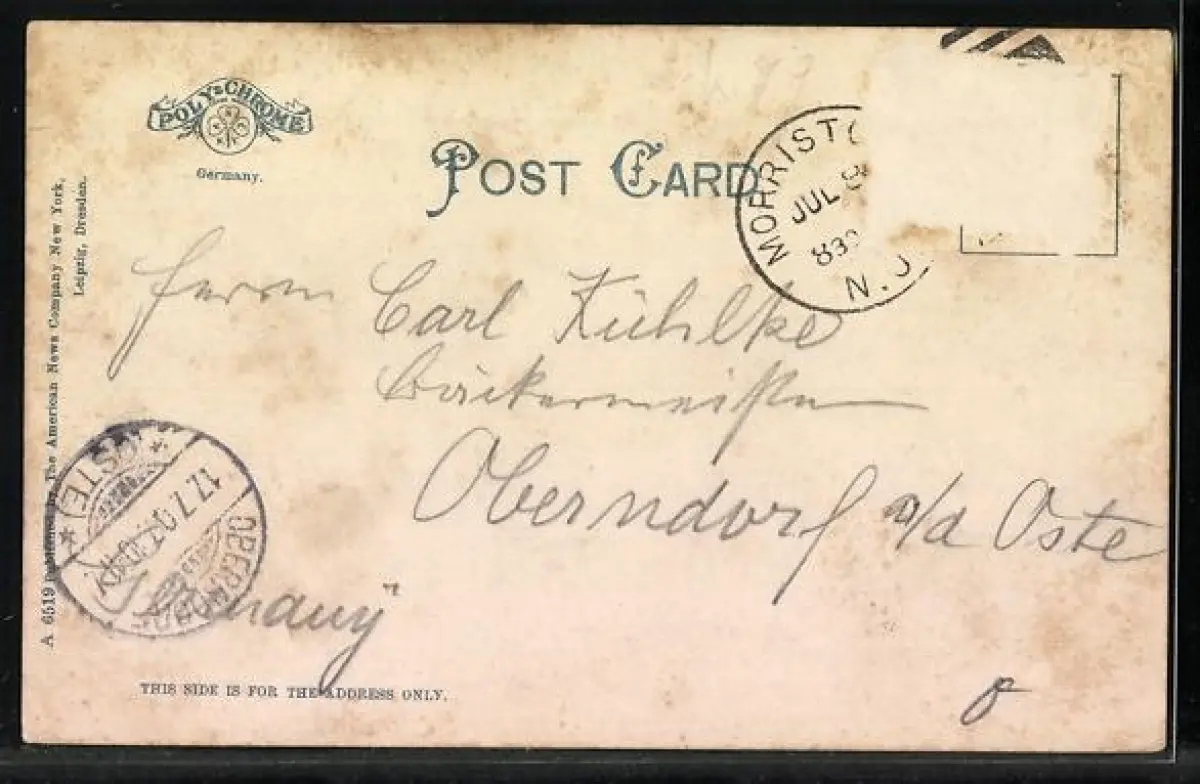 POLY-CHROME
Germany.
POST CARD
MORRISTO
JUL 8
830
N.J.
Herrn
Carl Kühlke
Bäckermeister
Oberndorf a/d Oste
Germany
OBERNDORF
(OSTE)
17.7.07.
A 6519 Published by The American News Company New York,
Leipzig, Dresden.
THIS SIDE IS FOR THE ADDRESS ONLY.